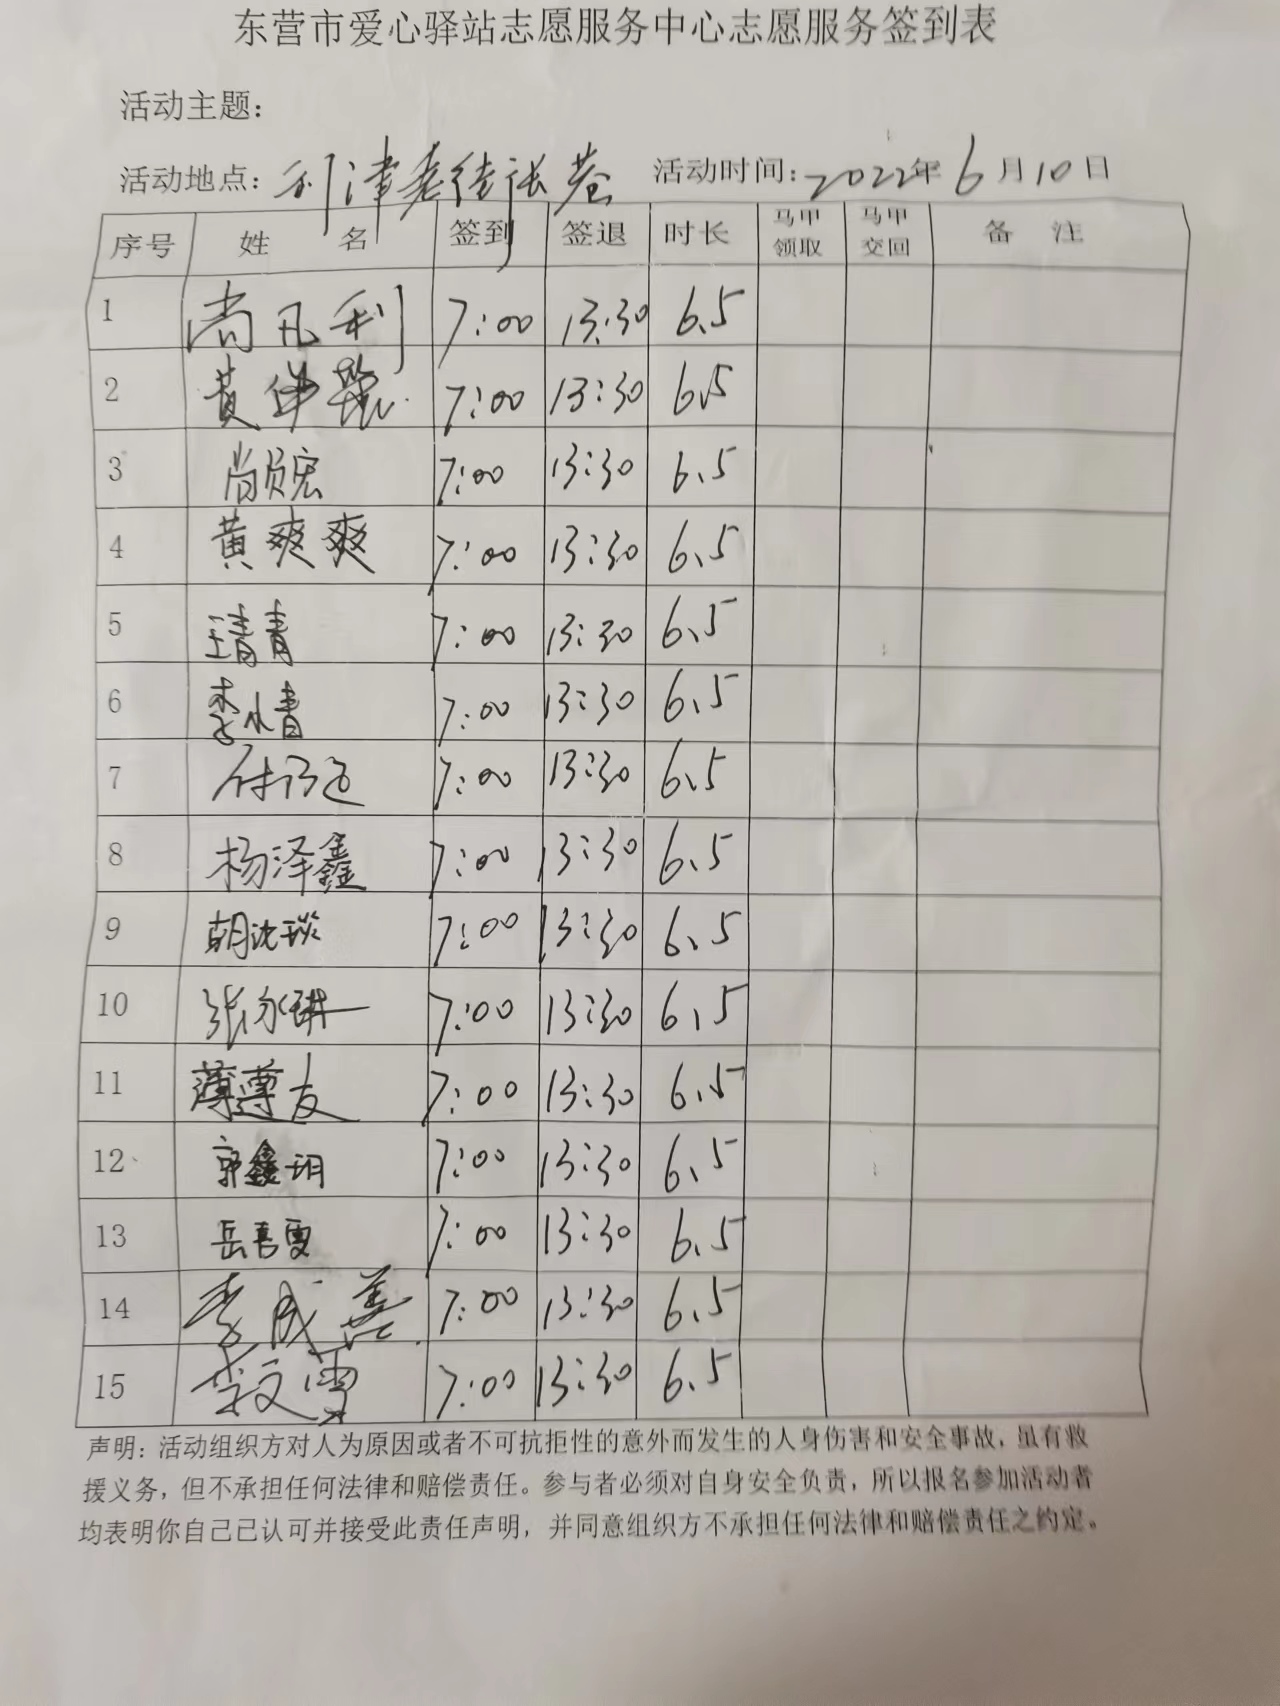 东营市爱心驿站志愿服务中心志愿服务签到表
活动主题:
活动地点: 利津老街长巷 活动时间: 2022年6月10日
序号 姓 名 签到 签退 时长 马甲领取 马甲交回 备 注
1 尚凡利 7:00 13:30 6.5
2 黄 7:00 13:30 6.5
3 尚贝宏 7:00 13:30 6.5
4 黄爽爽 7:00 13:30 6.5
5 王青青 7:00 13:30 6.5
6 李水青 7:00 13:30 6.5
7 7:00 13:30 6.5
8 杨泽鑫 7:00 13:30 6.5
9 7:00 13:30 6.5
10 张永琪 7:00 13:30 6.5
11 薄尊友 7:00 13:30 6.5
12 郭鑫玥 7:00 13:30 6.5
13 岳喜雯 7:00 13:30 6.5
14 李成善 7:00 13:30 6.5
15 李文雪 7:00 13:30 6.5
声明: 活动组织方对人为原因或者不可抗拒性的意外而发生的人身伤害和安全事故, 虽有救
援义务, 但不承担任何法律和赔偿责任。参与者必须对自身安全负责, 所以报名参加活动者
均表明你自己已认可并接受此责任声明, 并同意组织方不承担任何法律和赔偿责任之约定。